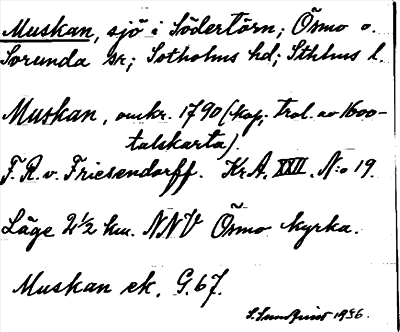 Muskan, sjö i Södertörn; Ösmo o.
Sorunda sr; Sotholms hd; Sthlms l.
Muskan, omkr. 1790 (kop; trol. av 1600-
talskarta).
F. R. v. Friesendorff. KrA. XXII. N:o 19.
Läge 2½ km. NNV Ösmo kyrka.
Muskan ek. G. 67.
S. Sundquist 1936.